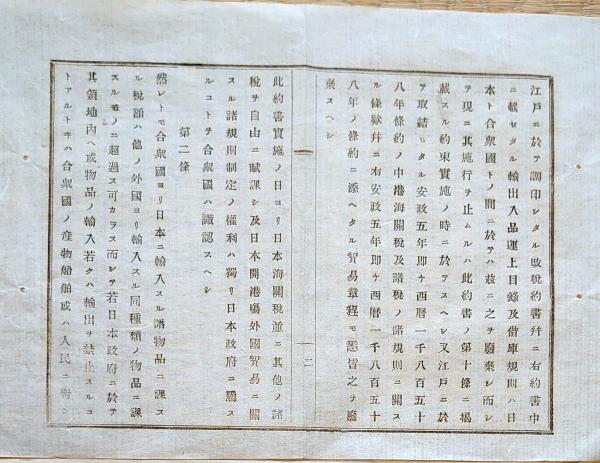 江戸ニ於テ調印シタル改税約書幷ニ右約書中
ニ載セタル輸出入品運上目錄及借庫規則ハ日
本ト合衆國トノ間ニ於テハ玆ニ之ヲ廢棄シ而シ
テ現ニ其施行ヲ止ムルハ此約書ノ第十條ニ揭
載スル約束實施ノ時ニ於テスヘシ又江戸ニ於
テ取結ヒタル安政五年卽チ西曆一千八百五十
八年條約ノ中港海關稅及諸稅ノ諸規則ニ關ス
ル條欵幷ニ右安政五年卽チ西曆一千八百五十
八年ノ條約ニ添ヘタル貿易章程モ悉皆之ヲ廢
棄スヘシ
二
此約書實施ノ日ヨリ日本海關稅並ニ其他ノ諸
稅ヲ自由ニ賦課シ及日本開港場外國貿易ニ關
スル諸規則制定ノ權利ハ獨リ日本政府ニ屬ス
ルコトヲ合衆國ハ識認スヘシ
第二條
然レトモ合衆國ヨリ日本ニ輸入スル諸物品ニ課ス
ル稅額ハ他ノ外國ヨリ輸入スル同種類ノ物品ニ課
スルモノニ超過ス可カラス而シテ若日本政府ニ於テ
其領地內ヘ或物品ノ輸入若クハ輸出ヲ禁止スルコ
トアルトキハ合衆國ノ產物船舶或ハ人民ニ對シ